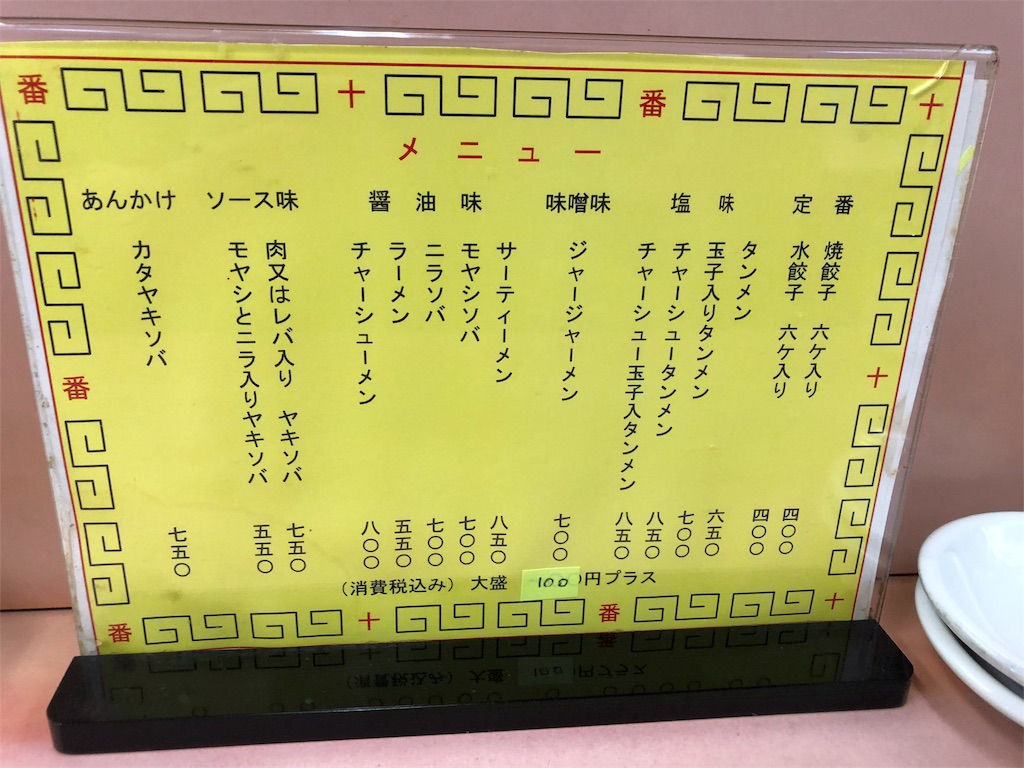 番 十 番 十
メニュー
定番
焼餃子 六ケ入り 四〇〇
水餃子 六ケ入り 四〇〇
塩味
タンメン 六五〇
玉子入りタンメン 七〇〇
チャーシュータンメン 八五〇
チャーシュー玉子入タンメン 八五〇
味噌味
ジャージャーメン 七〇〇
醤油味
サーティーメン 八五〇
モヤシソバ 七〇〇
ニラソバ 七〇〇
ラーメン 五五〇
チャーシューメン 八〇〇
ソース味
肉又はレバ入り ヤキソバ 七五〇
モヤシとニラ入りヤキソバ 五五〇
あんかけ
カタヤキソバ 七五〇
番 十
(消費税込み) 大盛 100円プラス
番 十 番 十